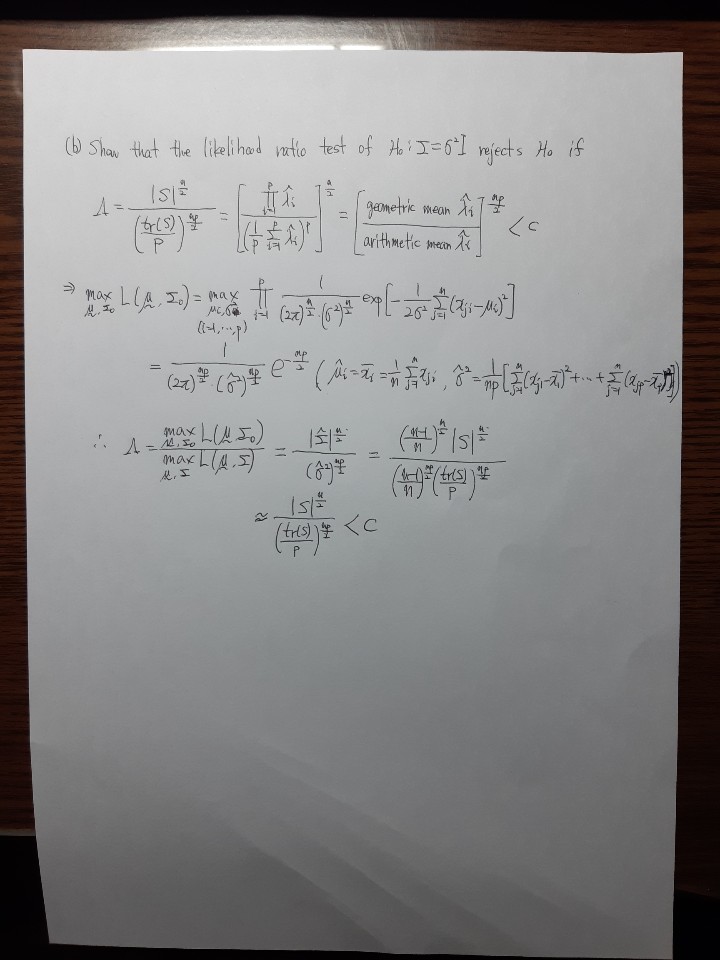 (b) Show that the likelihood ratio test of H₀ : Σ=σ²I rejects H₀ if
Λ = |S|^{n/2} / (tr(S)/p)^{np/2} = [ ∏_{i=1}^{p} λ̂_i / (1/p ∑_{i=1}^{p} λ̂_i)^p ]^{n/2} = [ geometric mean λ̂_i / arithmetic mean λ̂_i ]^{np/2} < c
⇒ max_{μ,Σ₀} L(μ, Σ₀) = max_{μ_i,σ² (i=1,⋯,p)} ∏_{i=1}^{p} 1 / ((2π)^{n/2}·(σ²)^{n/2}) exp[ -1/(2σ²) ∑_{j=1}^{n} (x_{ji}-μ_i)² ]
= 1 / ((2π)^{np/2}·(σ̂²)^{np/2}) e^{-np/2} ( μ̂_i = x̄_i = 1/n ∑_{j=1}^{n} x_{ji} , σ̂² = 1/np [ ∑_{j=1}^{n} (x_{j1}-x̄_1)² + ⋯ + ∑_{j=1}^{n} (x_{jp}-x̄_p)² ] )
∴ Λ = max_{μ,Σ₀} L(μ, Σ₀) / max_{μ,Σ} L(μ, Σ) = |Σ̂|^{n/2} / (σ̂²)^{np/2} = ((n-1)/n)^{n/2} |S|^{n/2} / ( ((n-1)/n)^{np/2} (tr(S)/p)^{np/2} )
≈ |S|^{n/2} / (tr(S)/p)^{np/2} < c